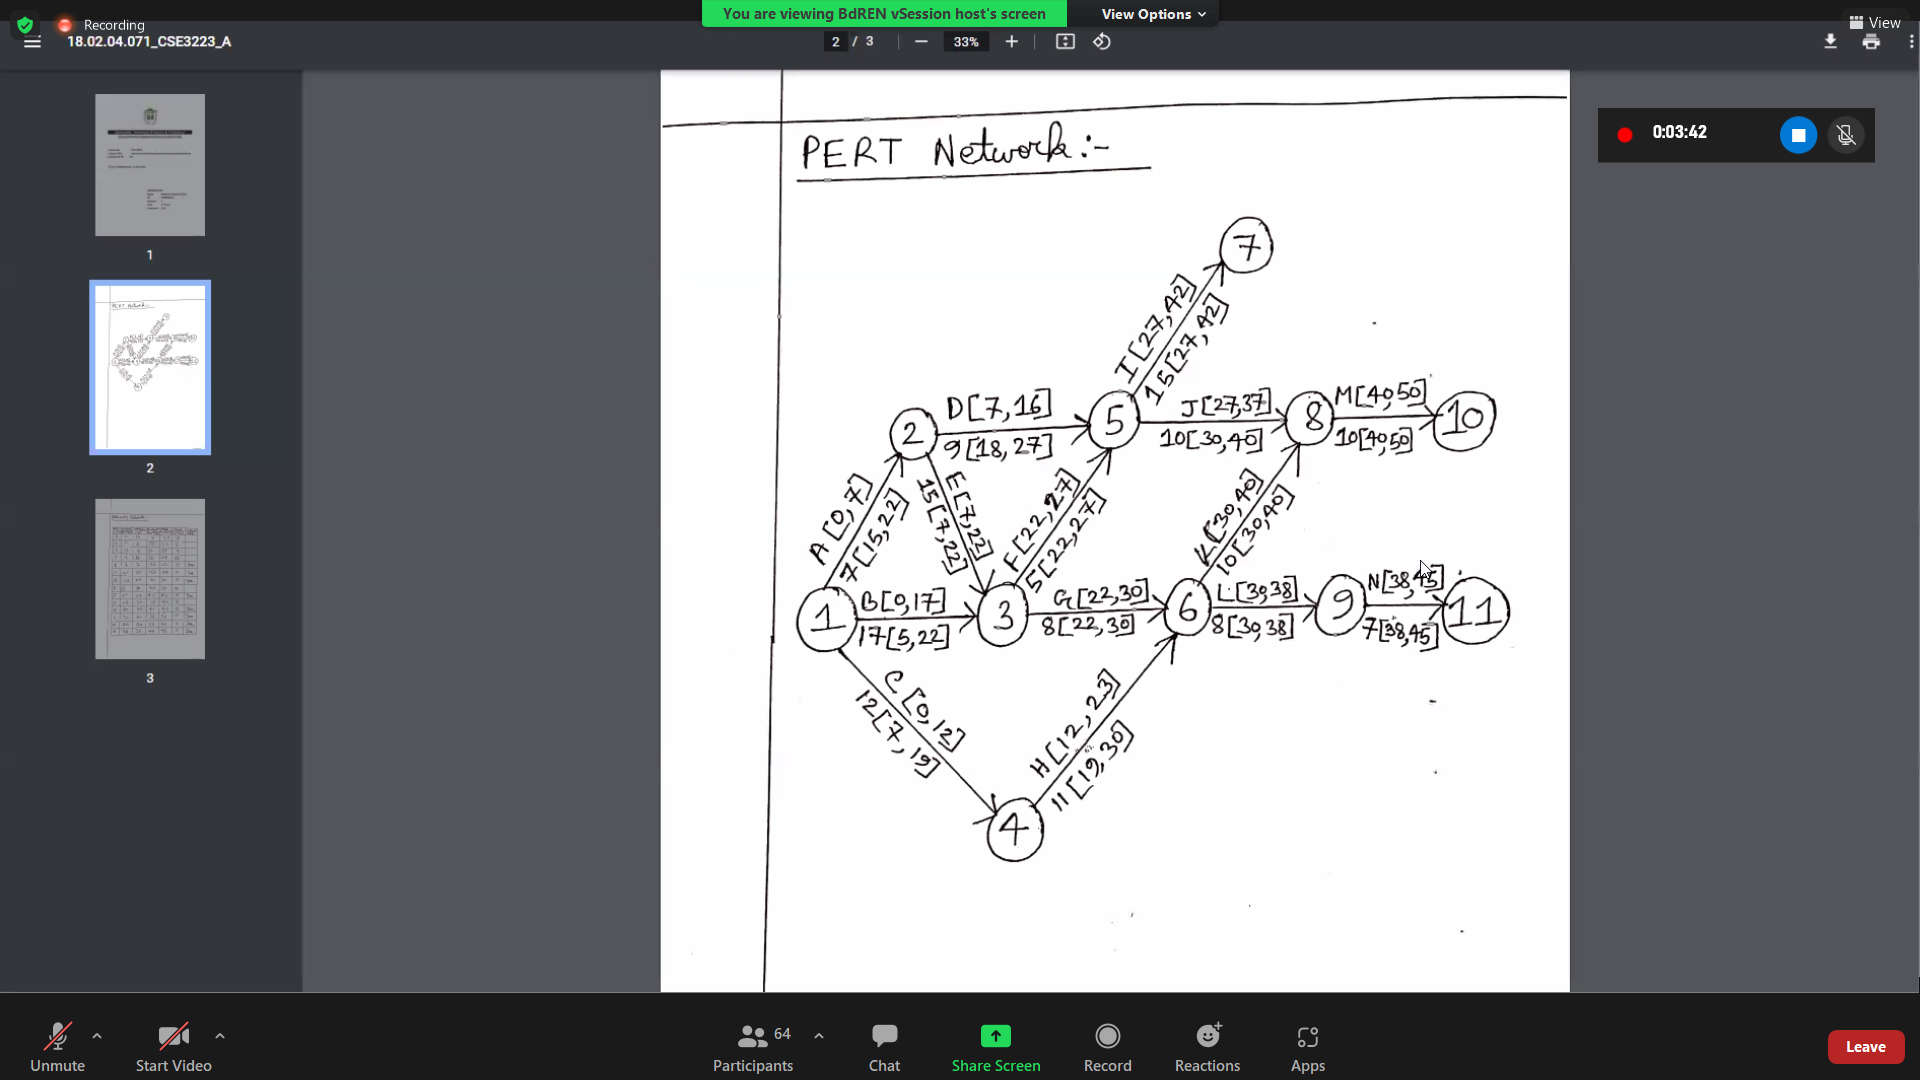 Recording
You are viewing BdREN vSession host's screen
View Options
View
18.02.04.071_CSE3223_A
2 / 3
33%
0:03:42
1
2
3
PERT Network:-
7
I[27,42]
15[27,42]
D[7,16]
9[18,27]
J[27,37]
10[30,40]
M[40,50]
10[40,50]
2
5
8
10
A[0,7]
7[15,22]
E[7,22]
15[7,22]
F[22,27]
5[22,27]
K[30,40]
10[30,40]
B[0,17]
17[5,22]
G[22,30]
8[22,30]
L[30,38]
8[30,38]
N[38,45]
7[38,45]
1
3
6
9
11
C[0,12]
12[7,19]
H[12,23]
11[19,30]
4
Unmute
Start Video
64
Participants
Chat
Share Screen
Record
Reactions
Apps
Leave